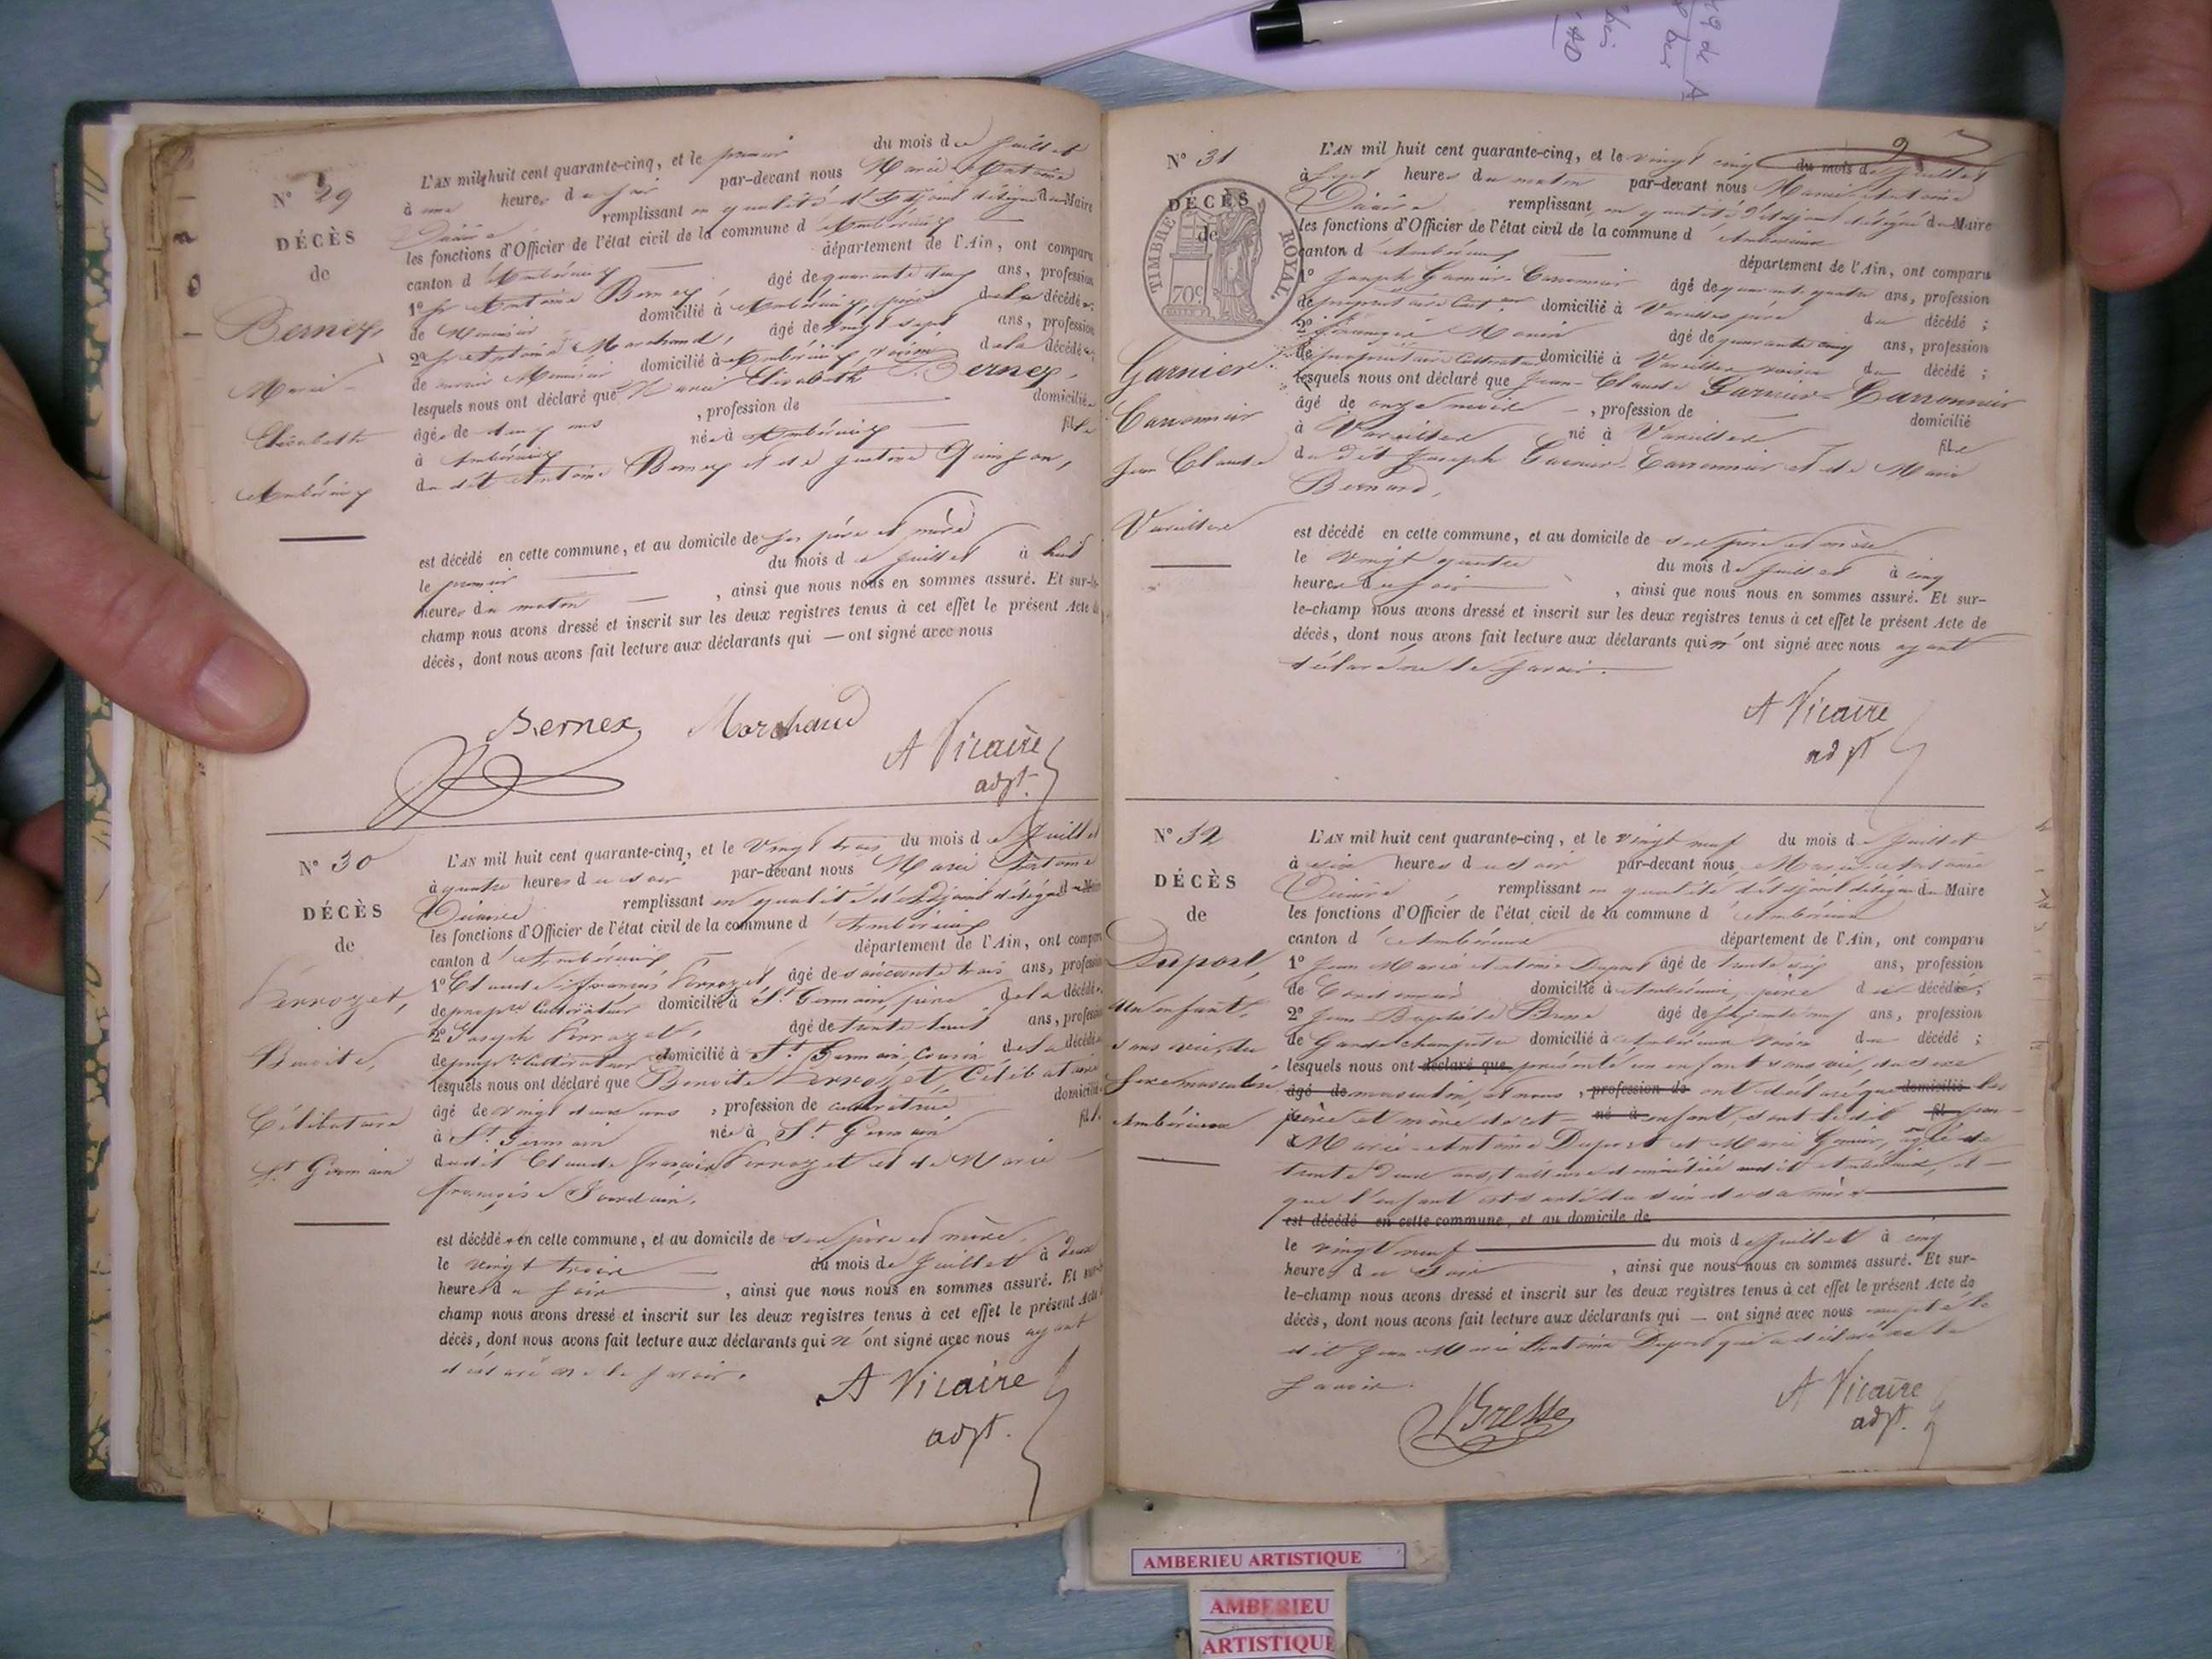 N° 29
DÉCÈS
de
Bernex,
Marie
Elisabeth
Ambérieux
L'AN mil huit cent quarante-cinq, et le premier du mois de Juillet
à une heure du soir par-devant nous Marie Antoine
Vicaire remplissant en qualité d'Adjoint délégué du Maire
les fonctions d'Officier de l'état civil de la commune d'Ambérieux
canton d'Ambérieux département de l'Ain, ont comparu
1° Antoine Bernex, âgé de quarante cinq ans, profession
de Menuisier domicilié à Ambérieux, père de la décédée;
2° Antoine Marchand, âgé de vingt sept ans, profession
de ouvrier Menuisier domicilié à Ambérieux, voisin de la décédée;
lesquels nous ont déclaré que Marie Elisabeth Bernex,
âgée de ans, profession de domiciliée
à Ambérieux née à Ambérieux fille
du dit Antoine Bernex et de Justine
est décédé en cette commune, et au domicile de ses père et mère
le premier du mois de Juillet à huit
heures du matin, ainsi que nous nous en sommes assuré. Et sur-le-
champ nous avons dressé et inscrit sur les deux registres tenus à cet effet le présent Acte de
décès, dont nous avons fait lecture aux déclarants qui — ont signé avec nous
Bernex Marchand A Vicaire
adjt.
N° 30
DÉCÈS
de
Perrozet,
Benoite,
Célibataire
St. Germain
L'AN mil huit cent quarante-cinq, et le vingt trois du mois de Juillet
à quatre heures du soir par-devant nous Marie Antoine
Vicaire remplissant en qualité d'Adjoint délégué du Maire
les fonctions d'Officier de l'état civil de la commune d'Ambérieux
canton d'Ambérieux département de l'Ain, ont comparu
1° Claude François Perrozet âgé de soixante trois ans, profession
de propre. Cultivateur domicilié à St. Germain, père de la décédée
2° Joseph Perrozet, âgé de trente huit ans, profession
de propre. Cultivateur domicilié à St. Germain, Cousin de la décédée
lesquels nous ont déclaré que Benoite Perrozet, Célibataire
âgé de vingt deux ans, profession de cultivatrice domiciliée
à St. Germain née à St. Germain fille
dudit Claude François Perrozet et de Marie
Françoise Jourdain.
est décédée en cette commune, et au domicile de ses père et mère
le vingt trois du mois de Juillet à deux
heures du soir, ainsi que nous nous en sommes assuré. Et sur-le-
champ nous avons dressé et inscrit sur les deux registres tenus à cet effet le présent Acte
décès, dont nous avons fait lecture aux déclarants qui n'ont signé avec nous ayant
déclaré ne le savoir.
A Vicaire
adjt.
N° 31
DÉCÈS
de
TIMBRE ROYAL.
70c
Garnier-
Carronnier
Jean Claude
Vareilles
L'AN mil huit cent quarante-cinq, et le vingt cinq du mois de Juillet
à sept heures du matin par-devant nous Marie Antoine
Vicaire remplissant en qualité d'Adjoint délégué du Maire
les fonctions d'Officier de l'état civil de la commune d'Ambérieux
canton d'Ambérieux département de l'Ain, ont comparu
1° Joseph Garnier-Carronnier âgé de quarante quatre ans, profession
de propriétaire Cult.eur domicilié à Vareilles père du décédé;
2° âgé de quarante cinq ans, profession
de propriétaire Cultivateur domicilié à Vareilles voisin du décédé;
lesquels nous ont déclaré que Jean-Claude Garnier-Carronnier
âgé de onze mois, profession de domicilié
à Vareilles né à Vareilles fils
du dit Joseph Garnier-Carronnier et de Marie
Bernard,
est décédé en cette commune, et au domicile de ses père et mère
le vingt quatre du mois de Juillet à cinq
heures du soir, ainsi que nous nous en sommes assuré. Et sur-
le-champ nous avons dressé et inscrit sur les deux registres tenus à cet effet le présent Acte de
décès, dont nous avons fait lecture aux déclarants qui n'ont signé avec nous ayant
déclaré ne le savoir.
A Vicaire
adjt
N° 32
DÉCÈS
de
Duport,
un enfant,
sans vie, du
sexe masculin
Ambérieux
L'AN mil huit cent quarante-cinq, et le vingt neuf du mois de Juillet
à six heures du soir par-devant nous Marie Antoine
Vicaire, remplissant en qualité d'Adjoint délégué du Maire
les fonctions d'Officier de l'état civil de la commune d'Ambérieux
canton d'Ambérieux département de l'Ain, ont comparu
1° Jean Marie Antoine Duport âgé de trente six ans, profession
de Cordonnier domicilié à Ambérieux, père du décédé;
2° Jean Baptiste Bresse âgé de ans, profession
de Garde champêtre domicilié à Ambérieux voisin du décédé;
lesquels nous ont déclaré que présenté un enfant sans vie, du sexe
âgé de masculin, et nous profession de ont déclaré que domicilié les
père et mère de cet né à enfant, sont ledit fil Jean-
Marie-Antoine Duport et Marie âgée de
trente deux ans, domiciliée audit Ambérieux, et
que l'enfant est sorti du sein de sa mère
est décédé en cette commune, et au domicile de
le vingt neuf du mois de Juillet à cinq
heures du soir, ainsi que nous nous en sommes assuré. Et sur-
le-champ nous avons dressé et inscrit sur les deux registres tenus à cet effet le présent Acte de
décès, dont nous avons fait lecture aux déclarants qui — ont signé avec nous excepté le
dit Jean Marie Antoine Duport qui a déclaré ne le
savoir.
Bresse A Vicaire
adjt.
AMBERIEU ARTISTIQUE
AMBERIEU
ARTISTIQUE